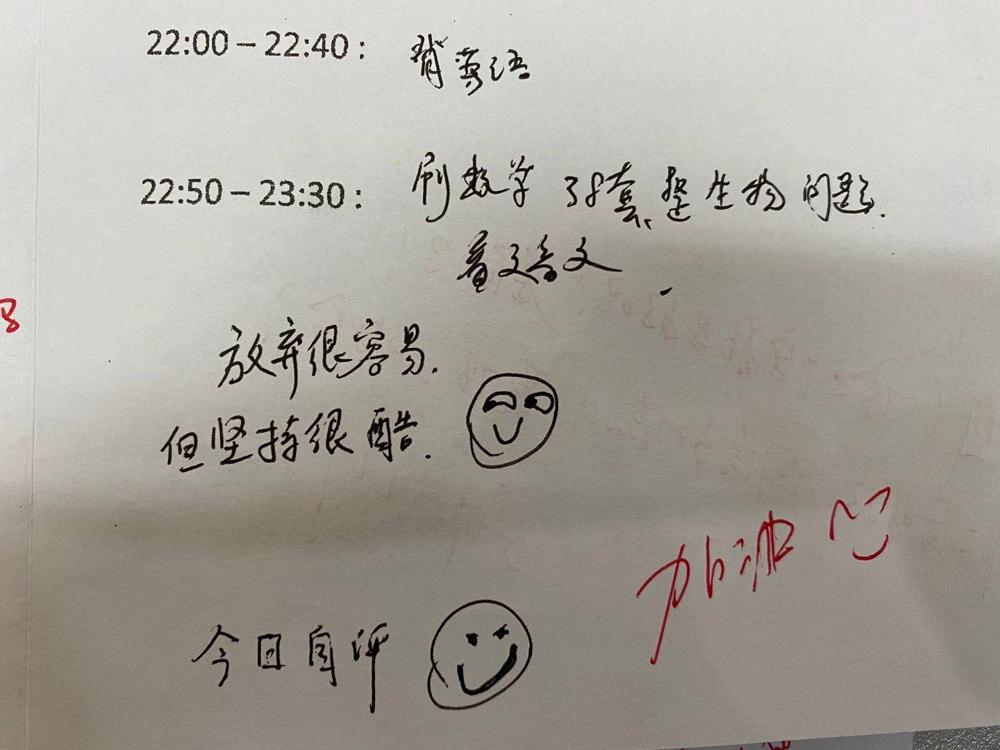 22:00 – 22:40： 背英语
22:50 – 23:30： 刷数学 38套、整生物问题.
文言文
放弃很容易.
但坚持很酷.
加油
今日自评